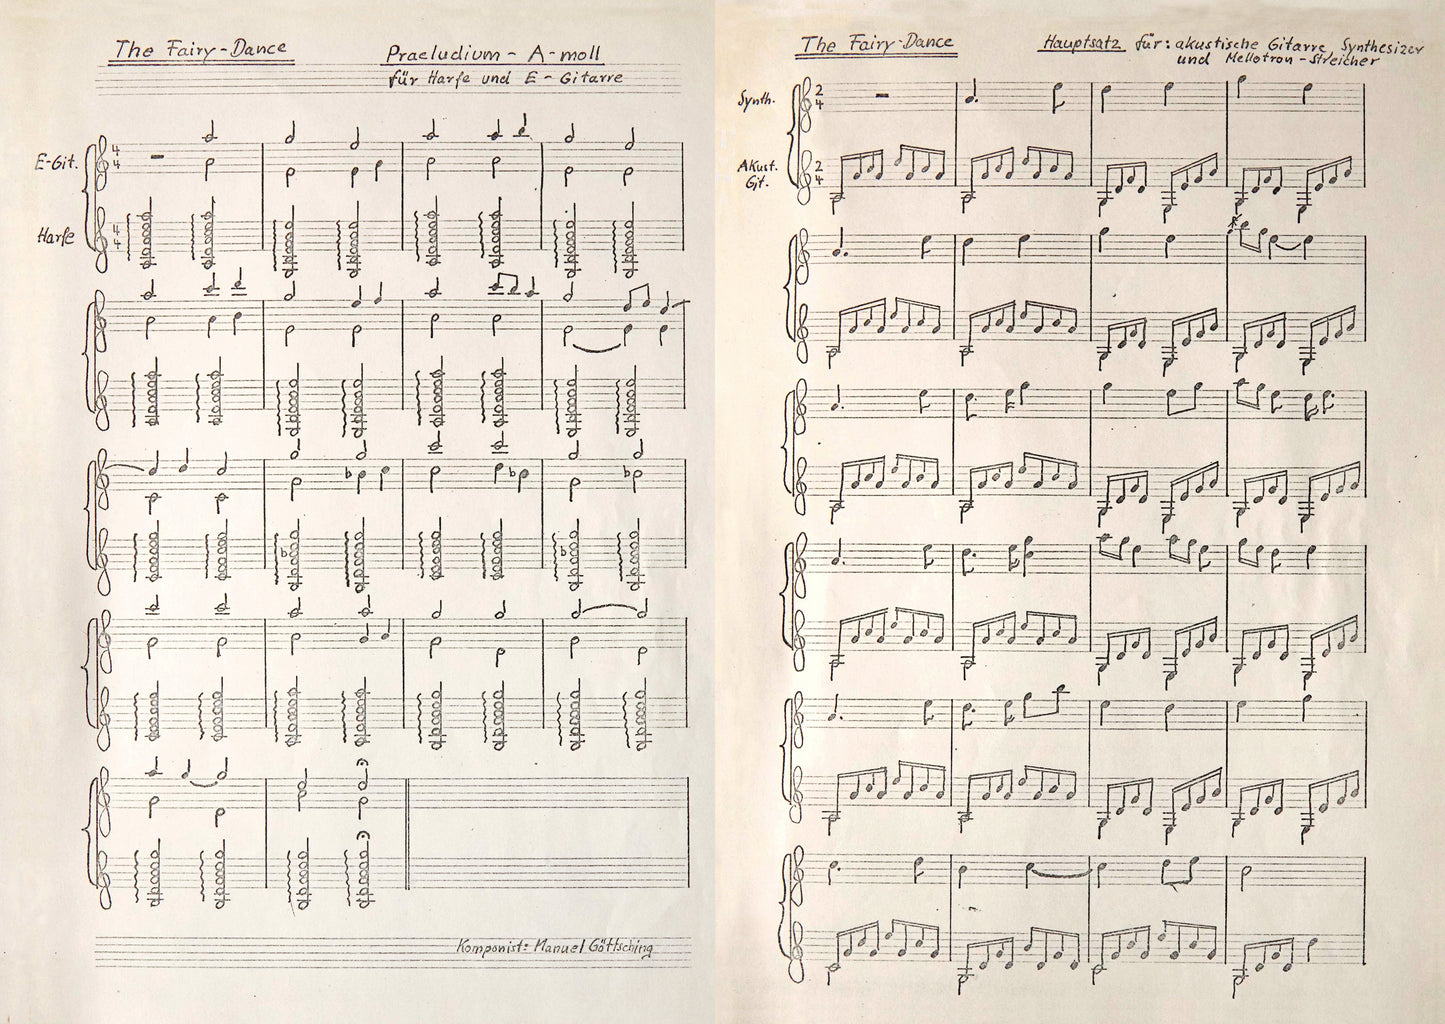 The Fairy-Dance
Praeludium - A-moll
für Harfe und E-Gitarre
E-Git.
4
4
Harfe
4
4
Komponist: Manuel Göttsching
The Fairy-Dance
Hauptsatz für: akustische Gitarre, Synthesizer
und Mellotron-Streicher
Synth.
2
4
Akust.
Git.
2
4